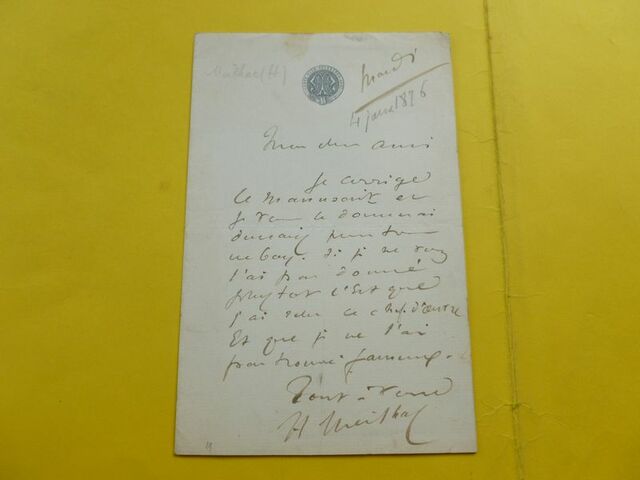 Meilhac (H)
mardi
4 janv 1876
Mon cher ami
Je corrige
le manuscrit et
je vous le donnerai
demain
Si je ne vous
l'ai pas donné
plustot c'est que
j'ai relu ce chef d'œuvre
Et que je ne l'ai
pas trouvé fameux.
Tout à vous
H Meilhac